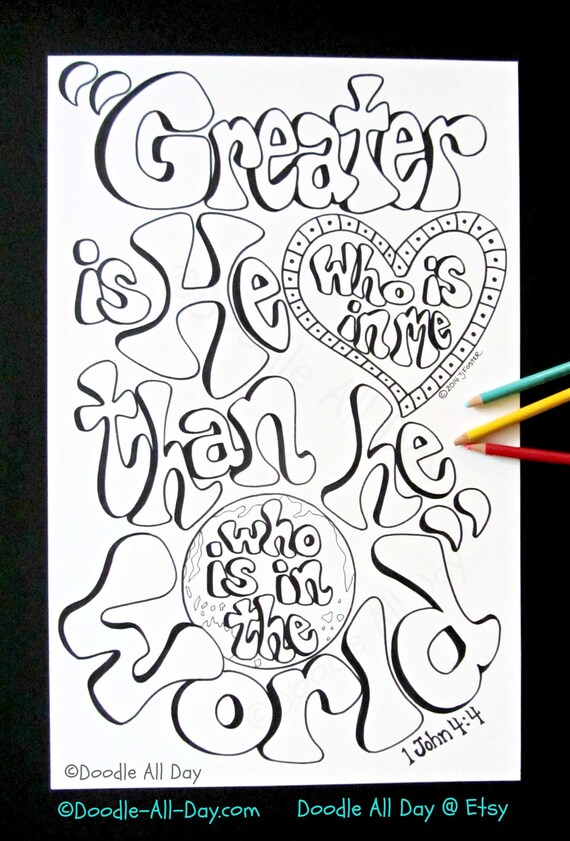 “Greater
is He who is
in me
©2014 J FOSTER
than he”
who
is in
the
World
1 John 4:4
©Doodle All Day
©Doodle-All-Day.com Doodle All Day @ Etsy